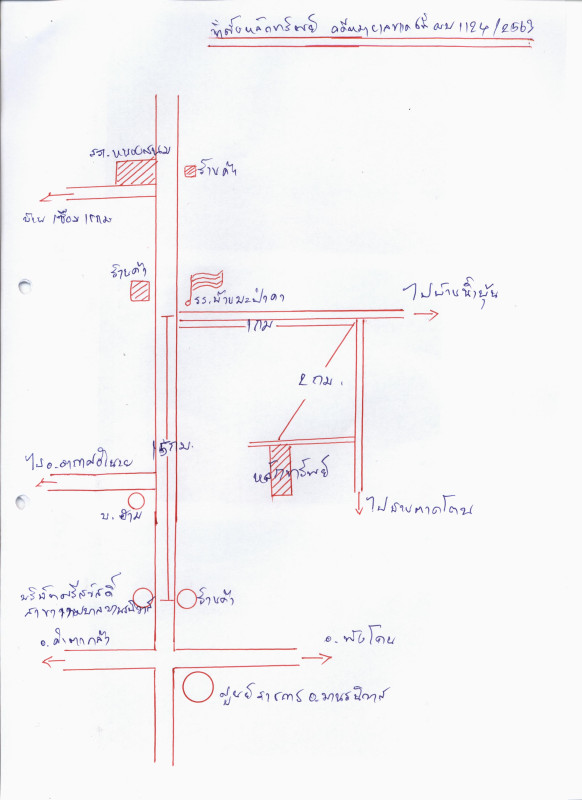 ที่ตั้งหลักทรัพย์ คดีหมายเลขแดงที่ ผบ 1124/2563
รร.หนองสนม
ร้านค้า
บ้าน
ร้านค้า
รร.บ้านมะป่าคา
ไปบ้านน้ำพุ้น
1 กม
2 กม.
กม.
ไป อ.อากาศอำนวย
หลักทรัพย์
บ.
ไปบ้านตาดโตน
บริษัทศรีสวัสดิ์
สาขา วานรนิวาส
ร้านค้า
อ.คำตากล้า
อ. พังโคน
ศูนย์ราชการ อ.วานรนิวาส